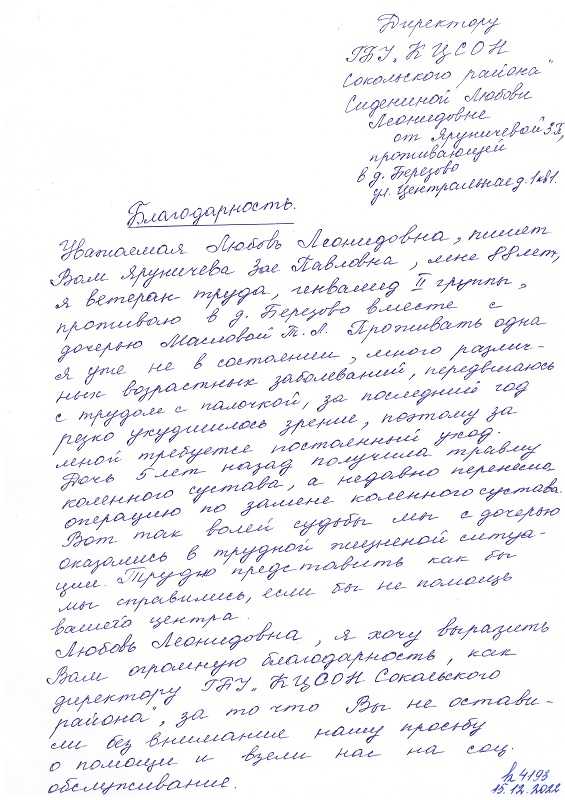 Директору
ГБУ "КЦСОН
Сокольского района"
Сидениной Любови
Леонидовне
от Яруничевой З.П,
проживающей
в д. Березово
ул. Центральная д.1 кв1.
Благодарность.
Уважаемая Любовь Леонидовна, пишет
Вам Яруничева Зоя Павловна, мне 88 лет,
я ветеран труда, инвалид II группы,
проживаю в д. Березово вместе с
дочерью Масловой Т.Л. Проживать одна
я уже не в состоянии, много различ-
ных возрастных заболеваний, передвигаюсь
с трудом с палочкой, за последний год
резко ухудшилось зрение, поэтому за
мной требуется постоянный уход.
Дочь 5 лет назад получила травму
коленного сустава, а недавно перенесла
операцию по замене коленного сустава.
Вот так волей судьбы мы с дочерью
оказались в трудной жизненой ситуа-
ции. Трудно представить как бы
мы справились, если бы не помощь
вашего центра.
Любовь Леонидовна, я хочу выразить
Вам огромную благодарность, как
директору ГБУ "КЦСОН Сокольского
района", за то что Вы не остави-
ли без внимания нашу просьбу
о помощи и взяли нас на соц.
обслуживание.
4193
15.12.2022